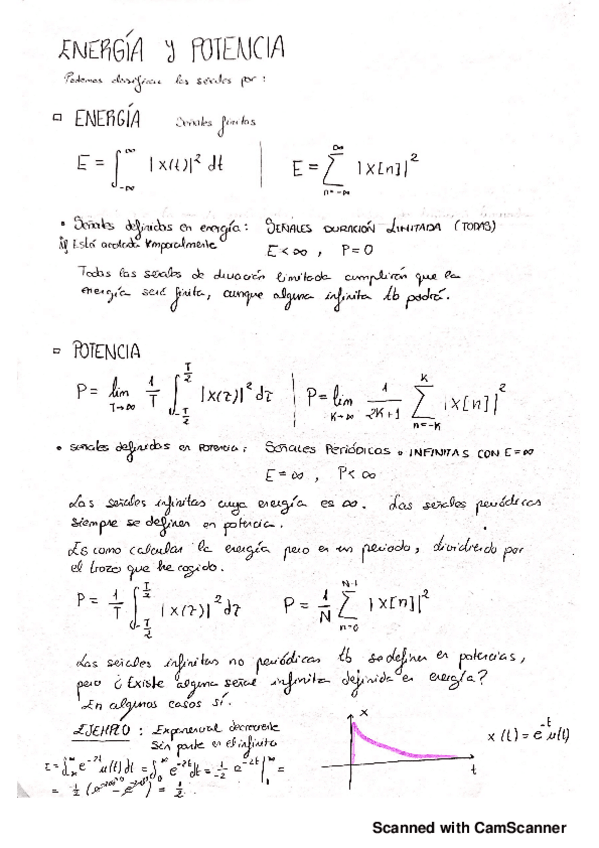 ENERGÍA Y POTENCIA
Podemos clasificar las señales por:
□ ENERGÍA Señales finitas
E = ∫_{-∞}^{∞} |x(t)|² dt | E = ∑_{n=-∞}^{∞} |x[n]|²
• Señales definidas en energía: SEÑALES DURACIÓN LIMITADA (TODAS)
Está acotada temporalmente E<∞ , P=0
Todas las señales de duración limitada cumplirán que la
energía será finita, aunque alguna infinita tb podrá.
□ POTENCIA
P = lim_{T→∞} 1/T ∫_{-T/2}^{T/2} |x(τ)|² dτ | P = lim_{K→∞} 1/(2K+1) ∑_{n=-K}^{K} |x[n]|²
• Señales definidas en potencia: SEÑALES PERIÓDICAS o INFINITAS CON E=∞
E=∞ , P<∞
Las señales infinitas cuya energía es ∞. Las señales periódicas
siempre se definen en potencia.
Es como calcular la energía pero en un periodo, dividiendo por
el trozo que he cogido.
P = 1/T ∫_{-T/2}^{T/2} |x(τ)|² dτ P = 1/N ∑_{n=0}^{N-1} |x[n]|²
Las señales infinitas no periódicas tb se definen en potencias,
pero ¿Existe alguna señal infinita definida en energía?
En algunos casos sí.
EJEMPLO: Exponencial decreciente
sin parte en el infinito
x
t
x(t) = e^{-t} u(t)
= ∫_{-∞}^{∞} e^{-2t} u(t) dt = ∫_{0}^{∞} e^{-2t} dt = 1/-2 e^{-2t} |_{0}^{∞} =
= 1/2
Scanned with CamScanner